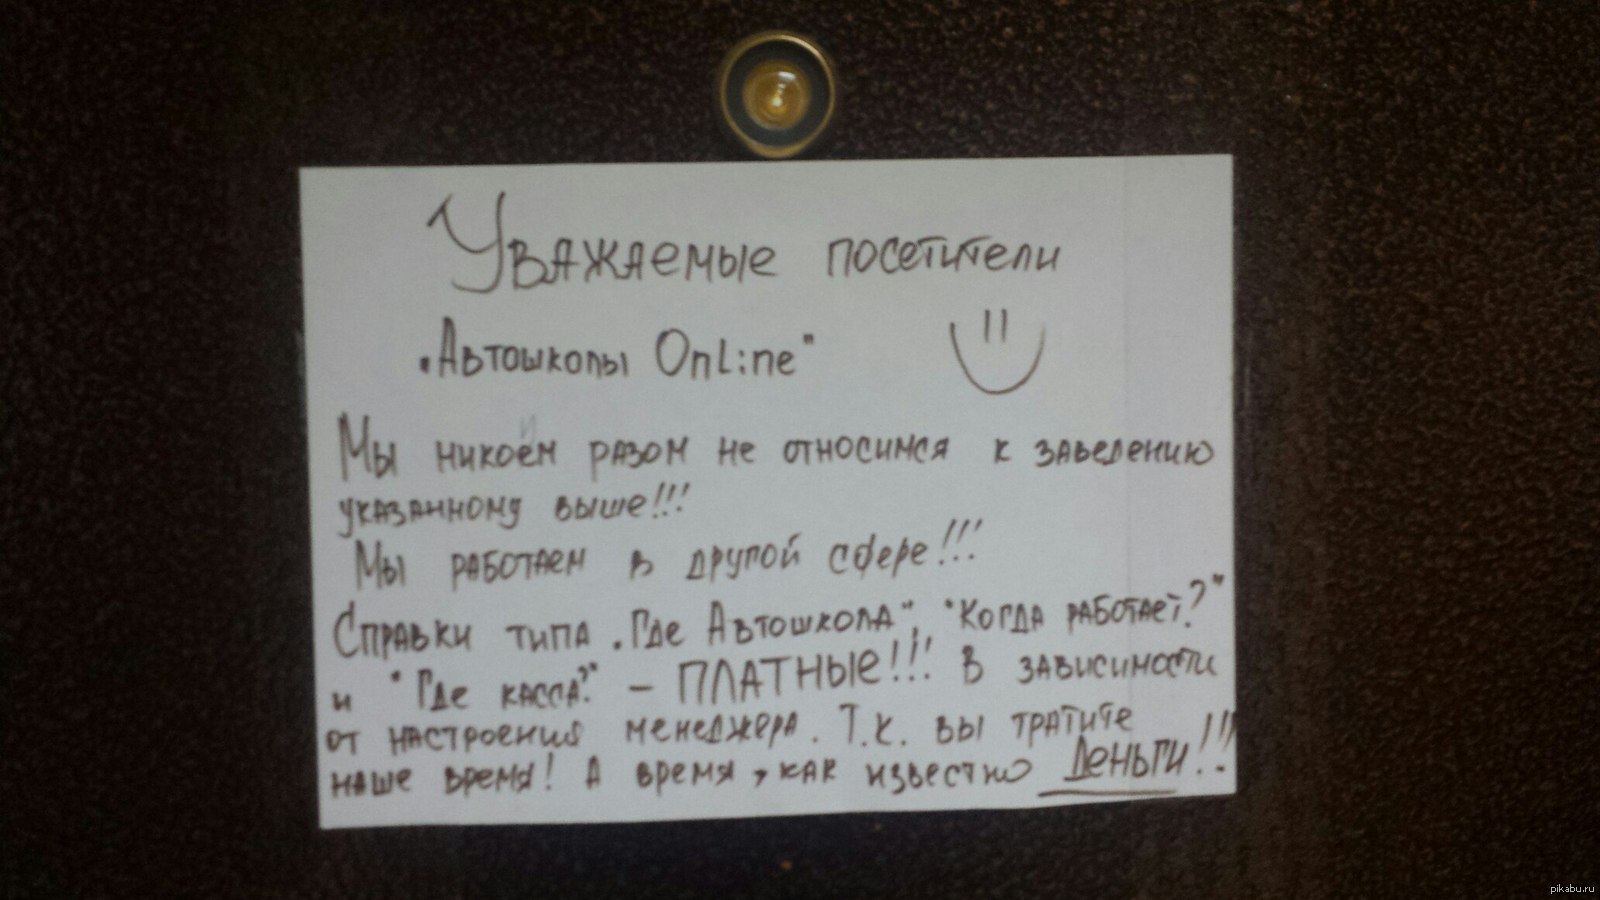 Уважаемые посетители
"Автошколы OnLine"
Мы никоем разом не относимся к заведению
указанному выше!!!
Мы работаем в другой сфере!!!
Справки типа "Где Автошкола", "Когда работает?"
и "Где касса?" – ПЛАТНЫЕ!!! В зависимости
от настроения менеджера. Т.к. вы тратите
наше время! А время, как известно Деньги!!!
pikabu.ru